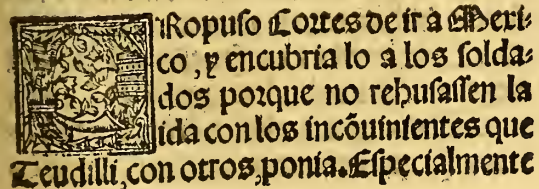 PRopuſo Cortes de ir a Mexi-
co, y encubria lo a los ſolda-
dos porque no rehuſaſſen la
ida con los incõuinientes que
Teudilli, con otros, ponia. Eſpecialmente